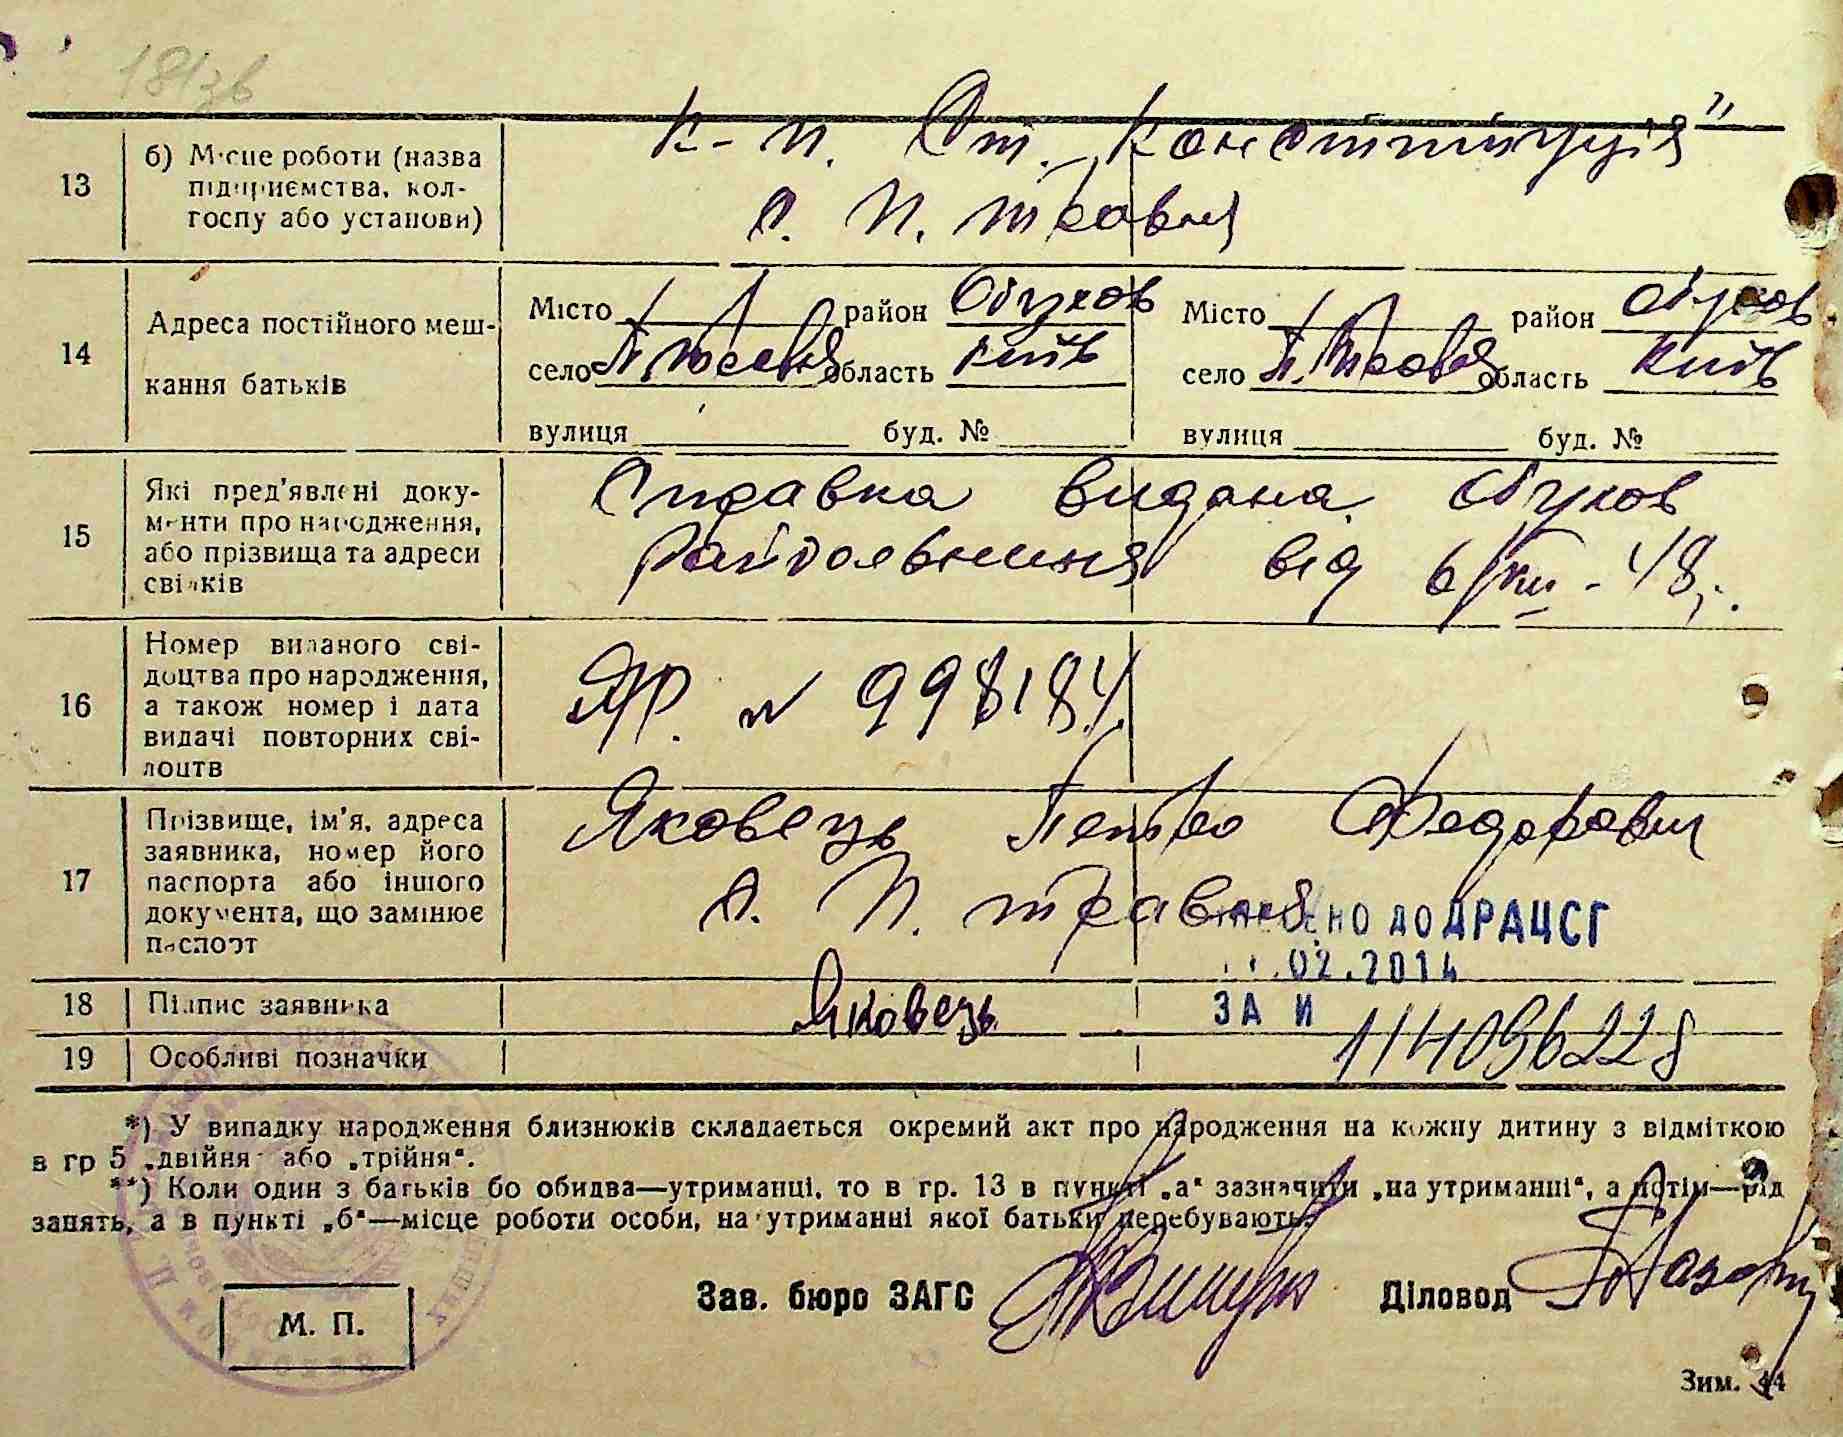 181зв
13
б) Місце роботи (назва
підприємства, кол-
госпу або установи)
К-п. Ст. Конституція"
с. П. травня
14
Адреса постійного меш-
кання батьків
Місто район Обухов
село П. Травня область Київ
вулиця буд. №
Місто район Обухов
село П. Травня область Київ
вулиця буд. №
15
Які пред'явлені доку-
менти про народження,
або прізвища та адреси
свідків
Справка видана Обухов
від 6/XII-48
16
Номер виданого сві-
доцтва про народження,
а також номер і дата
видачі повторних сві-
доцтв
ЯР. № 998184
17
Прізвище, ім'я, адреса
заявника, номер його
паспорта або іншого
документа, що замінює
паспорт
Яковець Петро Федорович
с. П. травня
ДО ДРАЦСГ
.02.2014
18
Підпис заявника
Яковець
ЗА N 114096228
19
Особливі позначки
*) У випадку народження близнюків складається окремий акт про народження на кожну дитину з відміткою
в гр 5 „двійня" або „трійня“.
**) Коли один з батьків бо обидва—утриманці, то в гр. 13 в пункті „а“ зазначити „на утриманні“, а потім—рід
занять, а в пункті „б“—місце роботи особи, на утриманні якої батьки перебувають.
Зав. бюро ЗАГС
Діловод
М. П.
Зим. 44